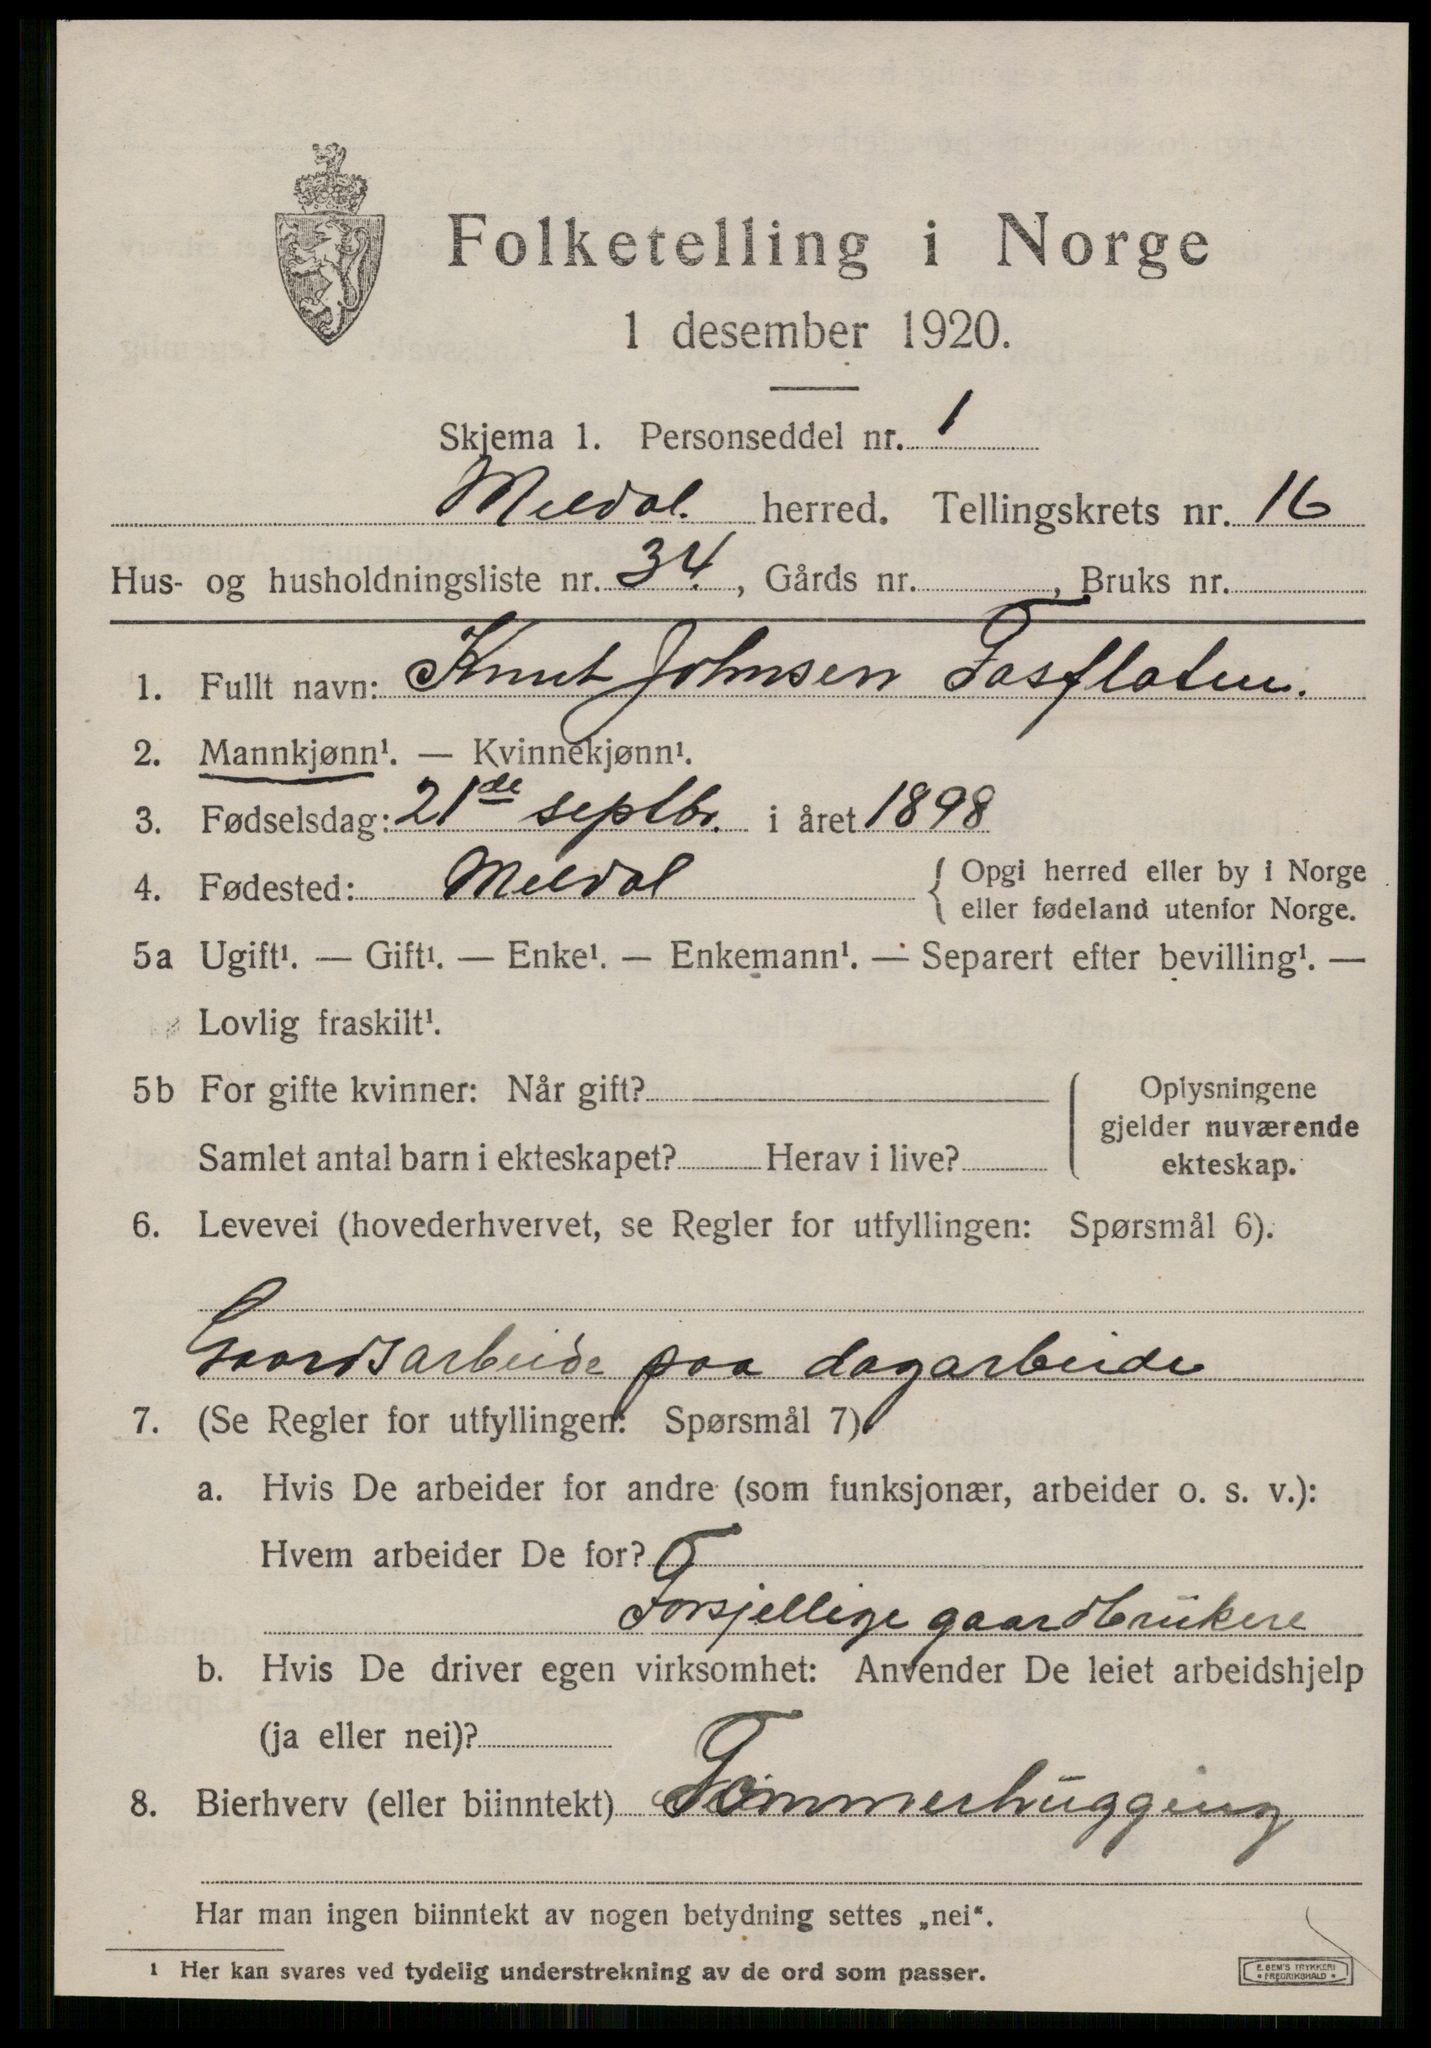 Folketelling i Norge
1 desember 1920.
Skjema 1. Personseddel nr. 1
Meldal. herred. Tellingskrets nr. 16
Hus- og husholdningsliste nr. 34., Gårds nr. , Bruks nr.
1. Fullt navn: Knut Johnsen Fasflaten.
2. Mannkjønn¹. — Kvinnekjønn¹.
3. Fødselsdag: 21de septbr. i året 1898
4. Fødested: Meldal { Opgi herred eller by i Norge
eller fødeland utenfor Norge.
5a Ugift¹. — Gift¹. — Enke¹. — Enkemann¹. — Separert efter bevilling¹. —
Lovlig fraskilt¹.
5b For gifte kvinner: Når gift? ( Oplysningene
gjelder nuværende
Samlet antal barn i ekteskapet? Herav i live? ekteskap.
6. Levevei (hovederhvervet, se Regler for utfyllingen: Spørsmål 6).
Gaardsarbeide paa dagarbeide
7. (Se Regler for utfyllingen: Spørsmål 7)
a. Hvis De arbeider for andre (som funksjonær, arbeider o. s. v.):
Hvem arbeider De for?
Forsjellige gaardbrukere
b. Hvis De driver egen virksomhet: Anvender De leiet arbeidshjelp
(ja eller nei)?
8. Bierhverv (eller biinntekt) Tømmerhugging
Har man ingen biinntekt av nogen betydning settes „nei“.
1 Her kan svares ved tydelig understrekning av de ord som passer.
E. SEM'S TRYKKERI
• FREDRIKSHALD •